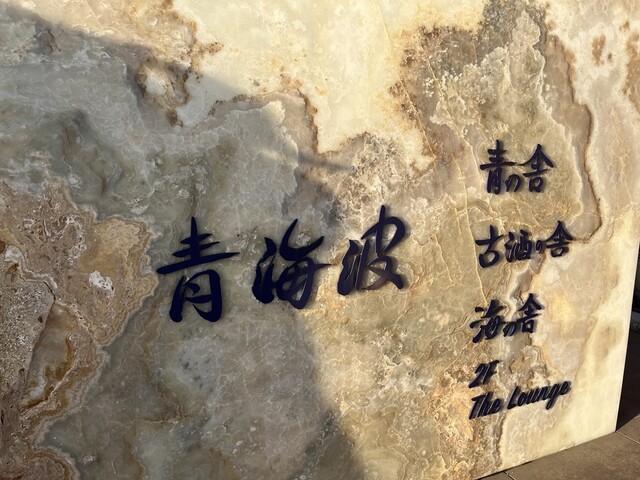 青海波
青の舎
古酒の舎
海の舎
2F
The Lounge